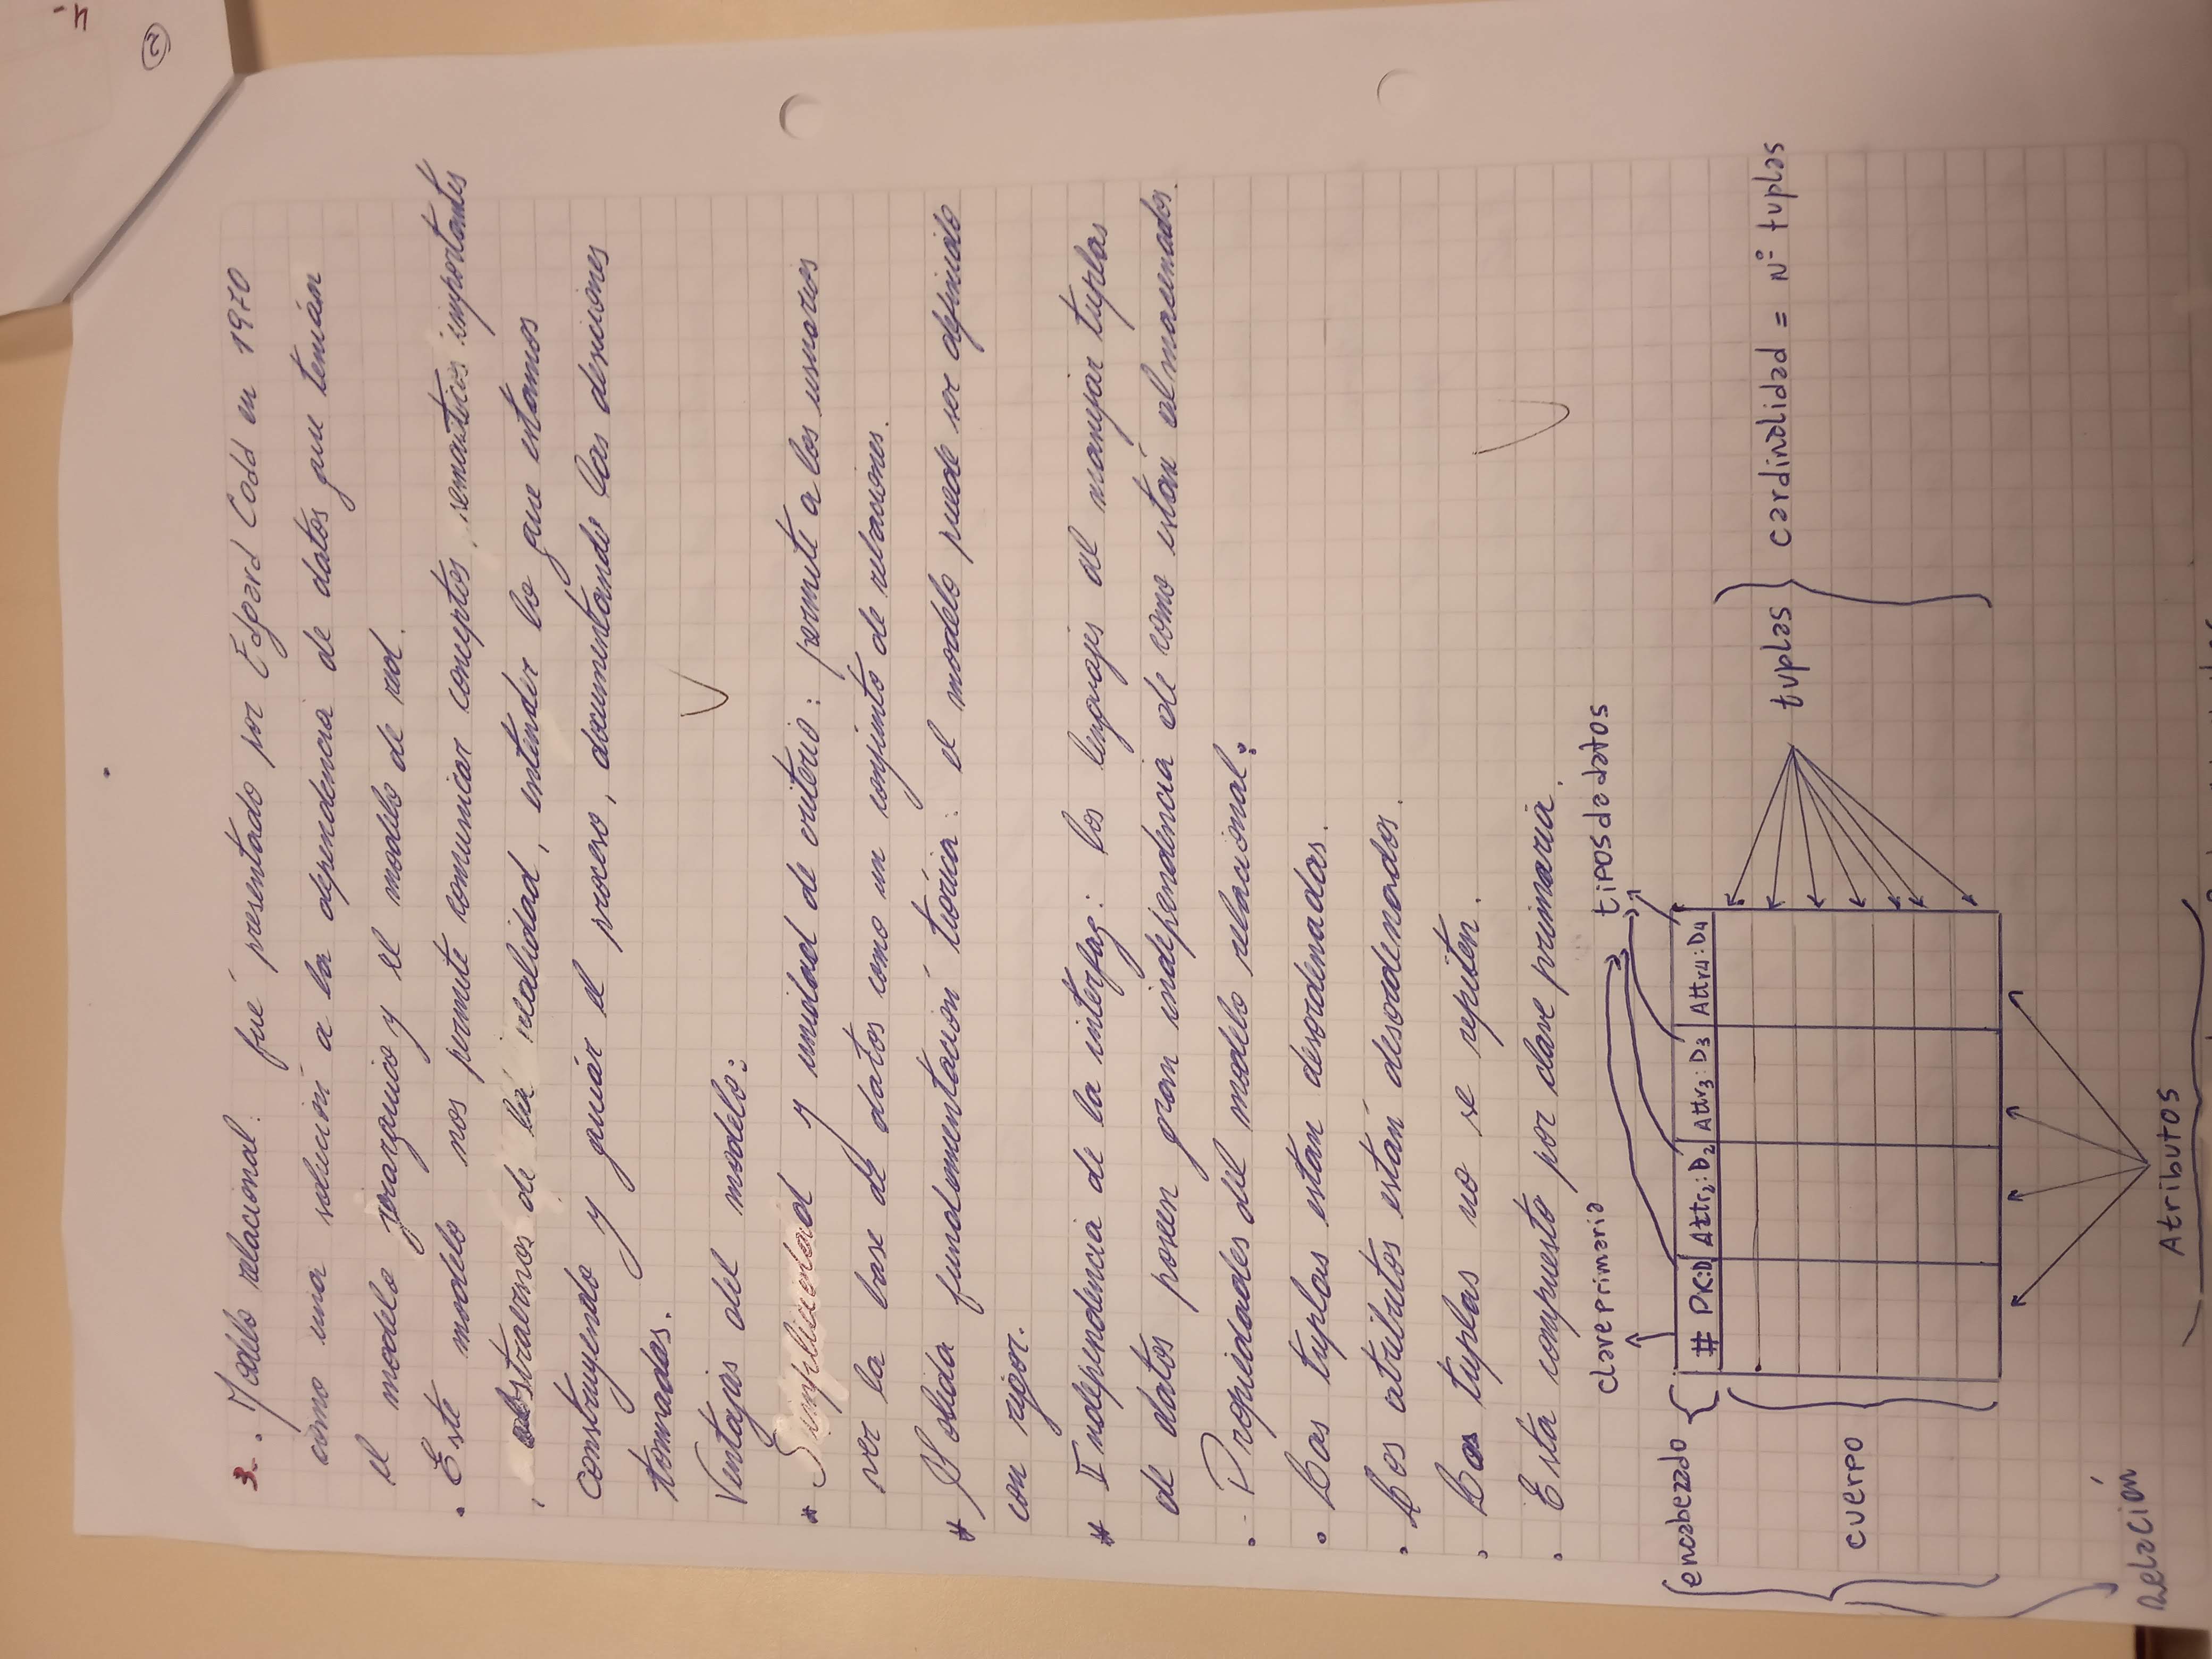 ②
3.. Modelo relacional: fué presentado por Edgard Codd en 1970
como una solución a la dependencia de datos que tenían
el modelo jerarquico y el modelo de red.
• Este modelo nos permite comunicar conceptos, semanticos importantes
, abstraernos de la realidad, entender lo que estamos
construyendo y guiár el proceso, documentando las desiciones
tomadas.
Ventajas del modelo:
* Simplicidad y unidad de criterio: permite a los usuarios
ver la base de datos como un conjunto de relaciones.
* Solida fundamentación teórica: el modelo puede ser definido
con rigor.
* Independencia de la interfaz: los lenguajes al manejar tuplas
de datos poseen gran independencia de como están almasenados.
• Propiedades del modelo relacional:
• Las tuplas estan desordenadas.
• Los atributos están desordenados.
• Las tuplas no se repiten.
• Esta compuesto por clave primaria.
clave primaria tipos de datos
encabezado # PK:D Attr2:D2 Attr3:D3 Attr4:D4
cuerpo tuplas cardinalidad = Nº tuplas
Relación Atributos